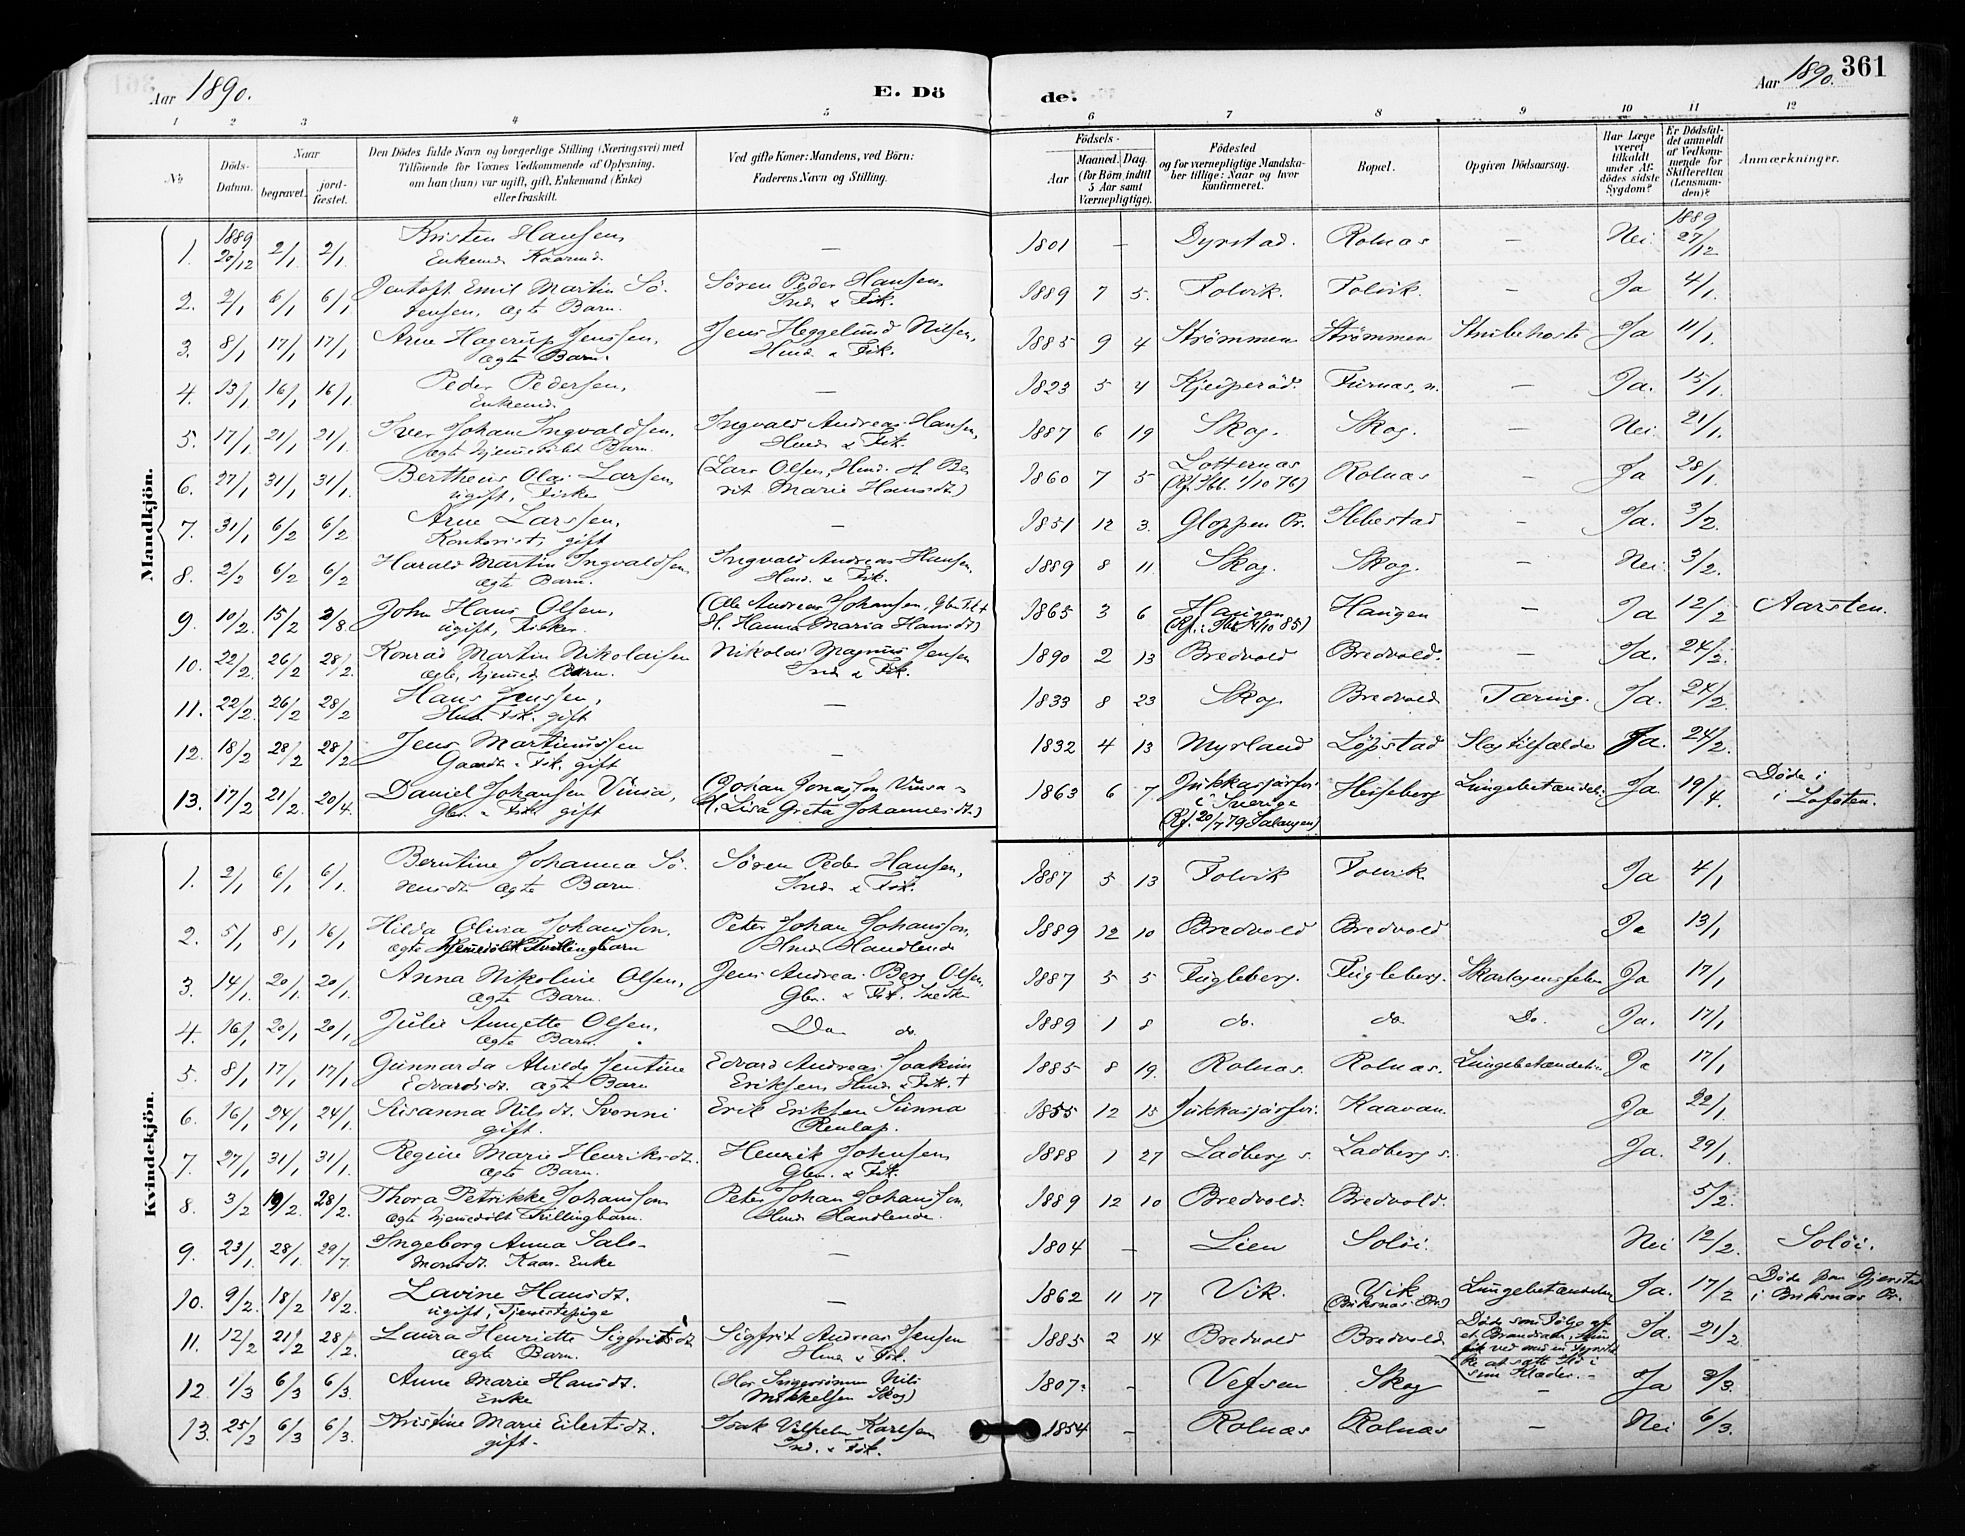 Aar 1890.
E. Dö
de.
Aar 1890.
361
1 2 3 4 5 6 7 8 9 10 11 12
No
Döds-Datum.
Naar
begravet.
jordfæstet.
Den Dödes fulde Navn og borgerlige Stilling (Næringsvei) med
Tilföiende for Voxnes Vedkommende af Oplysning,
om han (hun) var ugift, gift, Enkemand (Enke)
eller fraskilt.
Ved gifte Koner: Mandens, ved Börn:
Faderens Navn og Stilling.
Födsels-
Aar
Maaned. Dag.
(for Börn indtil
5 Aar samt
Værnepligtige).
Födested
og for værnepligtige Mandskaber
tillige: Naar og hvor
konfirmeret.
Bopæl.
Opgiven Dödsaarsag.
Har Læge
været
tilkaldt
under Afdödes
sidste
Sygdom?
Er Dödsfaldet
anmeldt
af Vedkommende
for
Skifteretten
(Lensmanden)?
Anmærkninger.
Mandkjön.
1. 1889 20/12 2/1 2/1 Kristen Hansen, — 1801 — Dyrstad. Rolnæs — Nei 1889 27/12
Enkemd. Kaarmd.
2. 2/1 6/1 6/1 Jentoft Emil Martin Sö- Sören Peder Hansen, 1889 7 5. Folvik. Folvik. — Ja 4/1.
rensen, ægte Barn. Ind. & Fisk.
3. 8/1 17/1 17/1 Arne Hagerup Jenssen, Jens Heggelund Nilsen, 1885 9 4 Strömmen Strömmen Strubehoste Ja 11/1.
ægte Barn. Hmd. & Fisk.
4. 13/1 16/1 16/1 Peder Pedersen, — 1823 5 4 Kjeiperöd. Furnæs, n. — Ja. 15/1.
Enkemd.
5. 17/1 21/1 21/1 Iver Johan Ingvaldsen, Ingvald Andreas Hansen, 1887 6 19 Skog. Skog. — Nei 21/1.
ægte hjemedöbt Barn. Hmd. & Fisk.
6. 27/1 31/1 31/1 Bertheus Olai Larsen, (Lars Olsen, Hmd. H. Be- 1860 7 5 Rolnæs — Ja 28/1.
ugift, Fisker rit Marie Hansdt.)
7. 31/1 6/2 6/2 Arne Larssen, — 1851 12 3. Gloppen Pr. Ibbestad — Ja. 3/2.
Kontorist, gift
8. 2/2 6/2 6/2 Harald Martin Ingvaldsen Ingvald Andreas Hansen, 1889 8 11. Skog. Skog. — Nei 3/2.
ægte Barn. Hmd. & Fisk.
9. 10/2 15/2 2/8 John Hans Olsen, (Ole Andreas Johansen, Gbr. Fsk. 1865 3 6 Haugen Haugen — Ja 12/2 Aarsten.
ugift, Fisker H. Hanna Maria Hansdt)
10. 22/2. 26/2 28/2. Konrad Martin Nikolaisen Nikolai Magnus Jensen 1890 2 13 Bredvold Bredvold. — Ja. 24/2.
ægte, hjemmed. Barn. Ind & Fsk.
11. 22/2. 26/2 28/2 Hans Jenssen, — 1833 8 23 Skog Bredvold Tæring. Ja. 24/2.
Hmd. Fsk. gift
12. 18/2 28/2 28/2 Jens Martinussen — 1832 4 13 Myrland Löpstad Slagtilfælde Ja. 24/2.
Gaardb. Fsk. gift
13. 17/2 21/2. 20/4. Daniel Johansen Vinsa, (Johan Jonasson Vinsa & 1863 6 7 Jukkasjärfvi Heiseberg Lungebetændels. Ja 19/4. Döde i
Gbr. & Fsk. gift H. Lisa Greta Johannesdt.) i Sverige i Lofoten.
(Kf. 20/7 79 Salangen)
Kvindekjön.
1. 2/1 6/1 6/1. Berntine Johanna Sö- Sören Peder Hansen, 1887 5 13 Folvik Folvik Ja 4/1
rensdt. ægte Barn Ind. & Fsk.
2. 5/1 8/1 16/1 Hilda Olivia Johansson, Peter Johan Johansson, 1889 12 10 Bredvold Bredvold Ja 13/1
ægte hjemedöbt Tvillingbarn Hmd. Handlende
3. 14/1 20/1 20/1. Anna Nikoline Olsen, Jens Andreas Berg Olsen, 1887 5 5 Fugleberg. Fugleberg. Ja 17/1
ægte Barn. Gbr. & Fsk. Snedker
4. 16/1 20/1 20/1 Julie Annette Olsen, Do do. 1889 1 8 do. do. Do. Ja. 17/1
ægte Barn.
5. 8/1 17/1 17/1 Gunnarda Alvilde Jentine Edvard Andreas Joakim 1885 8 19. Rolnæs. Rolnæs. Lungebetændelse Ja 17/1
Edvardsdt. ægte Barn Eriksen, Hmd. & Fisk. †
6. 16/1 24/1 24/1. Susanna Nilsdt. Svonni Erik Eriksen Sunna 1855 12 15 Jukkasjärfvi. Kaavan Ja 22/1
gift. Renlap.
7. 27/1 31/1 31/1. Regine Marie Henriksdt. Henrik Johnsen, 1888 1 27 Ladberg s. Ladberg s. Ja. 29/1.
ægte Barn. Gbr. & Fsk.
8. 3/2 19/2. 28/2. Thora Petrikke Johansson Peter Johan Johansson, 1889 12 10 Bredvold. Bredvold. 5/2.
ægte hjemedöbt Tvillingbarn. Hmd. Handlende.
9. 23/1. 28/1 29/7. Ingeborg Anna Salo- — 1804 — Lien Solöi. Nei 12/2. Solöi.
monsdt. Kaar. Enke
10. 9/2. 18/2 18/2. Lavine Hansdt. — 1862 11 17 Vik. Vik Lungebetændelse Ja. 17/2 Döde paa Gjerstad
ugift, Tjenestepige i Buksnæs Pr.
11. 12/2 21/2 28/2. Laura Henriette Sigfritsdt Sigfrit Andreas Jensen 1885 2 14 Bredvold Bredvold Döde som Fölge af Ja. 21/2
ægte Barn. Hmd. & Fsk. et Brandsaar,
12. 1/3 6/3 6/3. Anne Marie Hansdt. 1807. — Vefsen Skog — Ja 3/3.
Enke Mikkelsen Skog)
13. 25/2 6/3 6/3. Kristine Marie Eilertsdt. Isak Vilhelm Karlsen 1854 — Rolnæs Rolnæs — Nei 6/3.
gift. Ind. & Fsk.